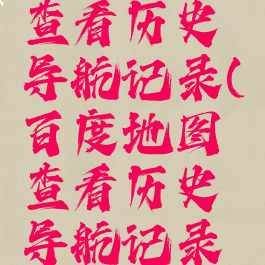 查看历史
导航记录(
百度地图
查看历史
导航记录